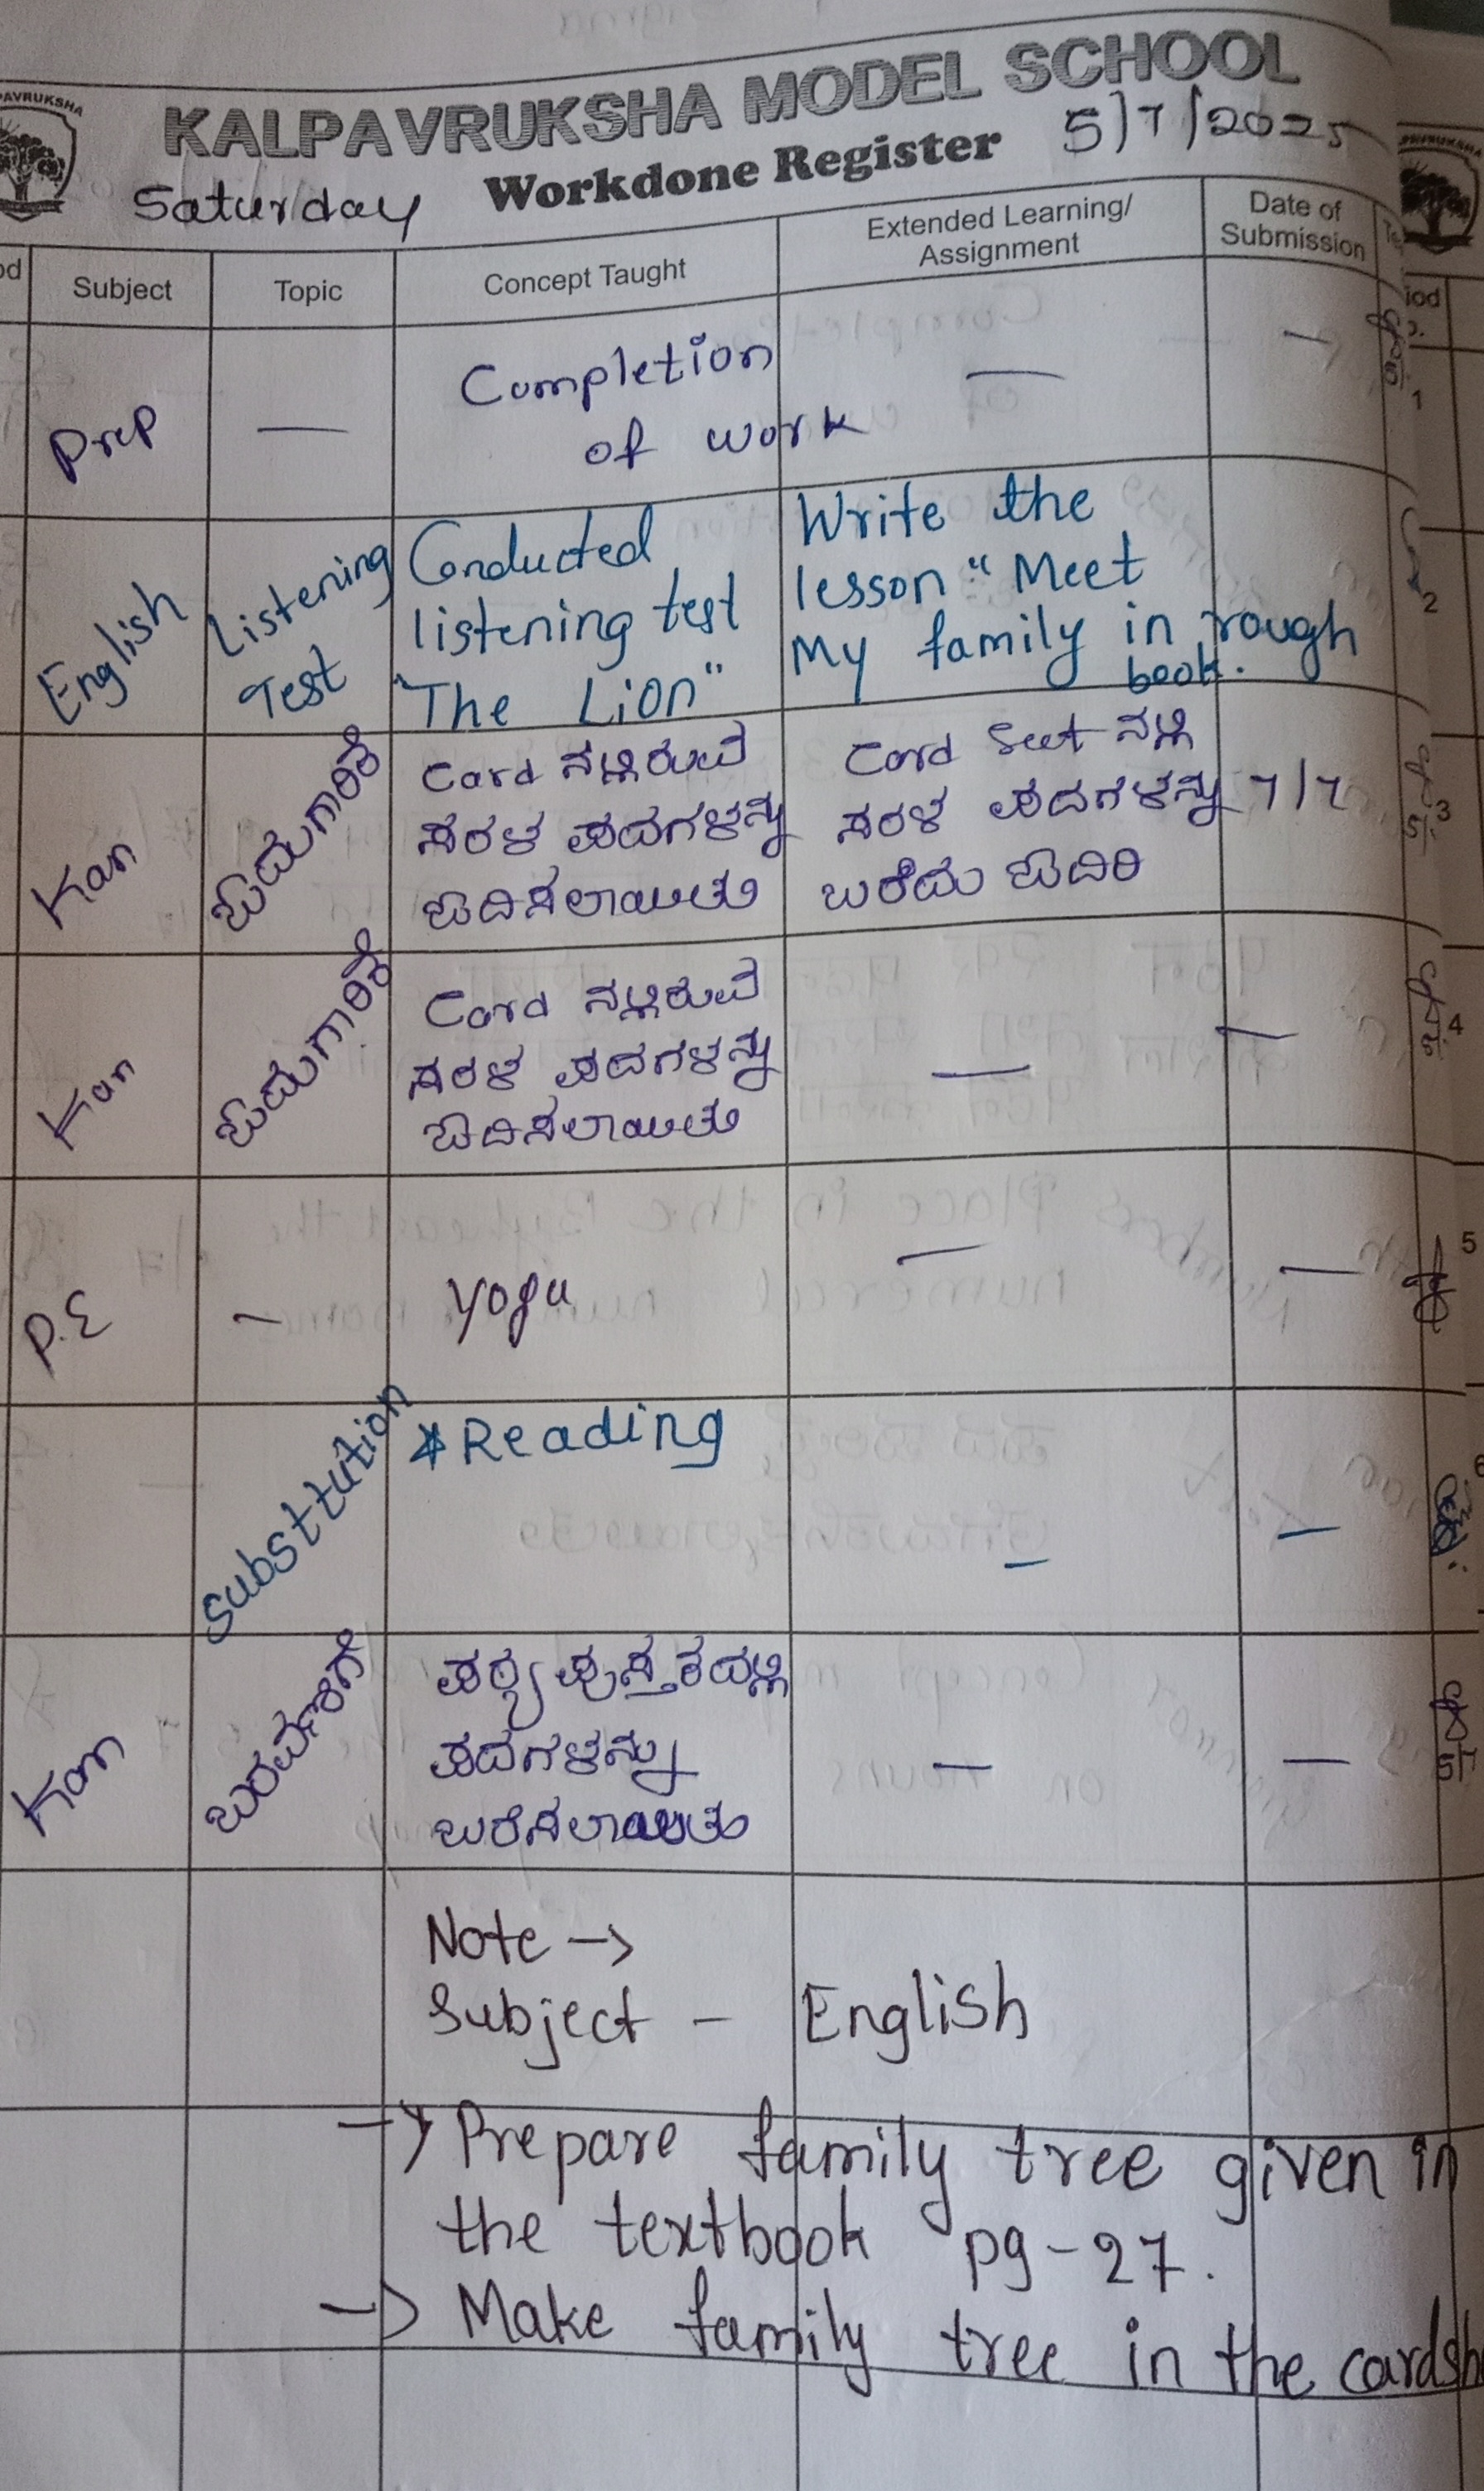 KALPAVRUKSHA MODEL SCHOOL
Workdone Register
5/7/2025
Saturday
Subject
Topic
Concept Taught
Extended Learning/
Assignment
Date of
Submission
Prep
—
Completion
of work
—
—
1
English
Listening
Test
Conducted
listening test
"The Lion"
Write the
lesson "Meet
My family in rough
book.
2
Kan
ಓದುಗಾರಿಕೆ
Card ನಲ್ಲಿರುವ
ಸರಳ ಪದಗಳನ್ನು
ಓದಿಸಲಾಯಿತು
Card Seet ನಲ್ಲಿ
ಸರಳ ಪದಗಳನ್ನು
ಬರೆದು ಓದಿರಿ
7/7
3
Kan
ಓದುಗಾರಿಕೆ
Card ನಲ್ಲಿರುವ
ಸರಳ ಪದಗಳನ್ನು
ಓದಿಸಲಾಯಿತು
—
—
4
P.E
—
Yoga
—
—
5
Substitution
*Reading
—
—
Kan
ಬರವಣಿಗೆ
ಪಠ್ಯಪುಸ್ತಕದಲ್ಲಿ
ಪದಗಳನ್ನು
ಬರೆಸಲಾಯಿತು
—
—
Note →
Subject - English
→ Prepare family tree given in
the textbook pg-27.
→ Make family tree in the